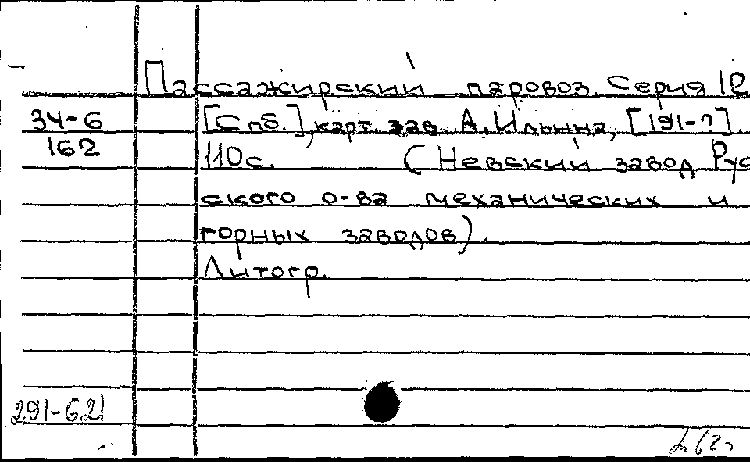 Пассажирский паровоз. Серия
34-6
162
[Спб.], карт. зав. А. Ильина, [191-?].
110с. (Невский завод Рус
ского о-ва механических и
горных заводов).
Литогр.
291-621